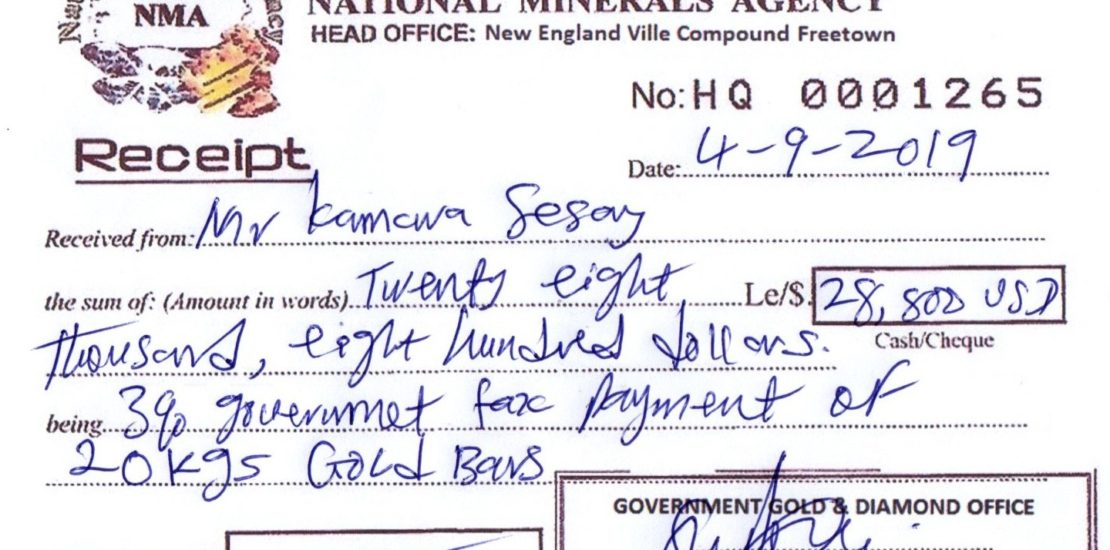 NMA
NATIONAL MINERALS AGENCY
HEAD OFFICE: New England Ville Compound Freetown
No: HQ 0001265
Receipt
Date: 4-9-2019
Received from: Mr Kamara Sesay
the sum of: (Amount in words) Twenty eight Le/$. 28,800 USD
thousand, eight hundred dollars. Cash/Cheque
being 3% governmet tax payment of
20kgs Gold Bars
GOVERNMENT GOLD & DIAMOND OFFICE